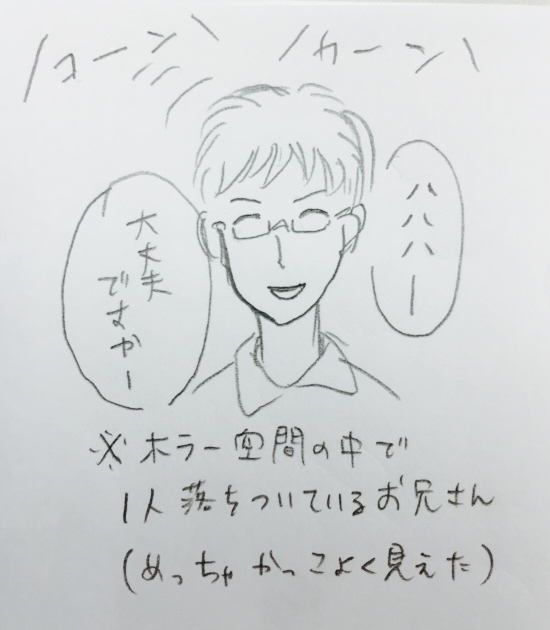 コーン
カーン
ハハハー
大丈夫
ですかー
※ホラー空間の中で
1人落ちついているお兄さん
(めっちゃかっこよく見えた)